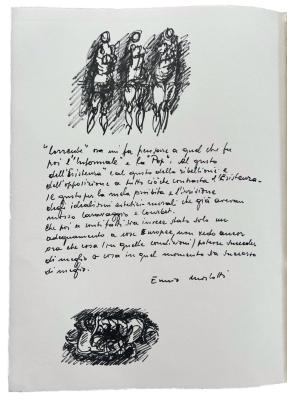 "Corrente" ora mi fa pensare a quel che fu
poi l'"Informale" e la "Pop". Al gusto
dell'Esistenza e al gusto della ribellione e
dell'opposizione a tutto ciò che contrasta l'Esistenza.
Il gusto per la mela proibita e l'irrisione
degli idealismi estetici-morali che già avevan
mosso Caravaggio e Courbet.
Che poi a conti fatti sia invece stato solo un
adeguamento a voce Europea, non vedo ancora
ora che cosa (in quelle condizioni) potesse succedere
di meglio o cosa in quel momento sia successo
di meglio.
Ennio Morlotti